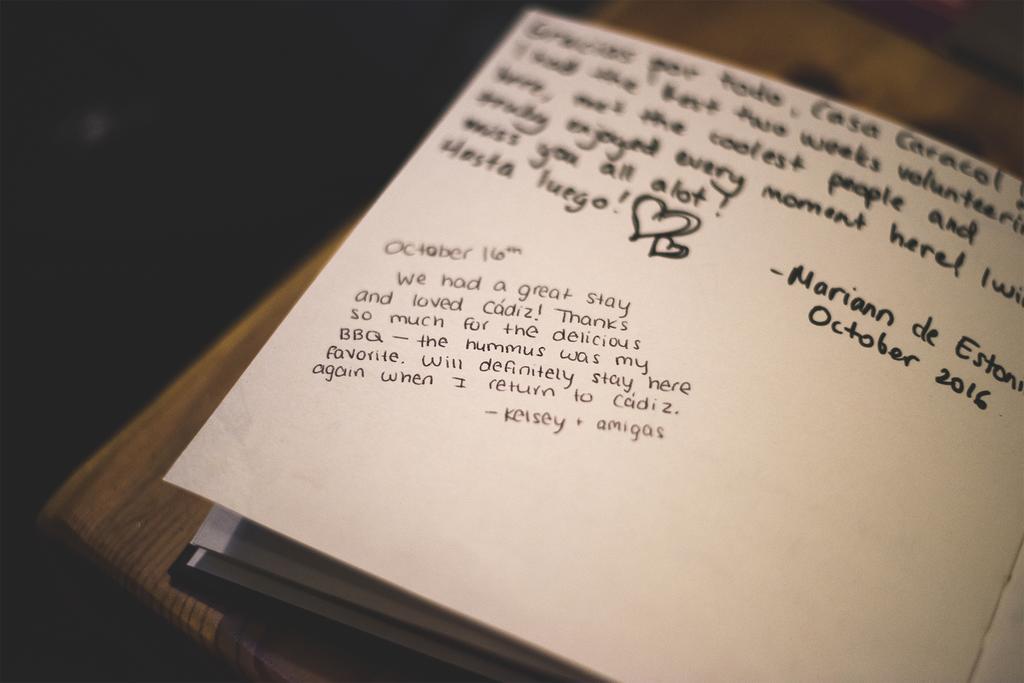 Gracias por todo, Casa Caracol!
I had the best two weeks volunteering
here, met the coolest people and
enjoyed every moment here! I will
miss you all alot!
Hasta luego!
- Mariann de Estoni
October 2016
October 16th
We had a great stay
and loved Cádiz! Thanks
so much for the delicious
BBQ — the hummus was my
favorite. Will definitely stay here
again when I return to Cádiz.
- Kelsey + amigas